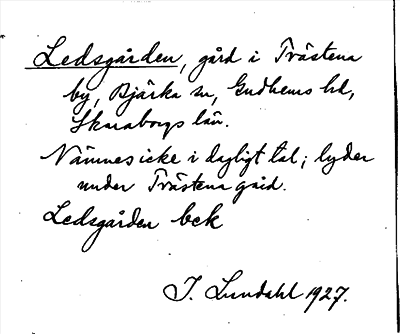 Ledsgården, gård i Trästena
by, Bjärka sn, Gudhems hd,
Skaraborgs län.
Nämnes icke i dagligt tal; lyder
under Trästena gård.
Ledsgården bck
I. Lundahl 1927.